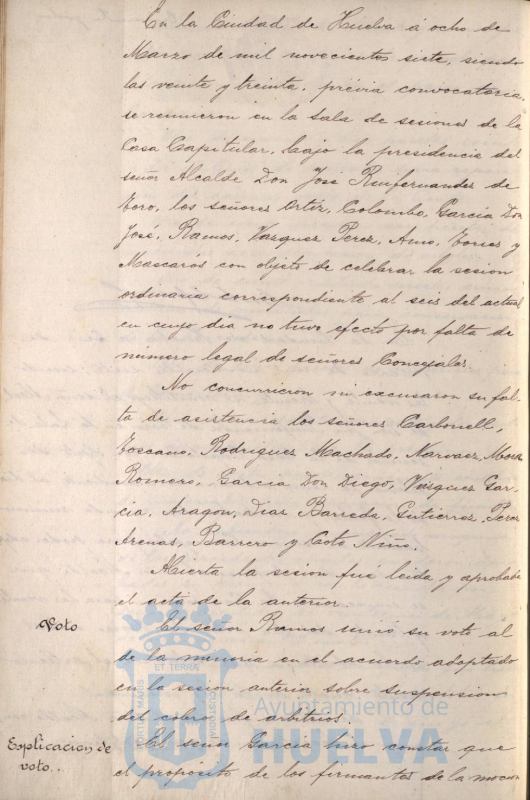 En la Ciudad de Huelva á ocho de
Marzo de mil novecientos siete, siendo
las veinte y treinta, prévia convocatoria,
se reunieron en la Sala de sesiones de la
Casa Capitular, bajo la presidencia del
señor Alcalde Don José Ruifernandez de
Toro, los señores Ortiz, Colombo, Garcia Don
José, Ramos, Vazquez Perez, Amo, Torres y
Mascarós con objeto de celebrar la sesion
ordinaria correspondiente al seis del actual
en cuyo dia no tuvo efecto por falta de
número legal de señores Concejales.
No concurrieron ni escusaron su fal-
ta de asistencia los señores Carbonell,
Toscano, Rodriguez Machado, Narvaez, Mora
Romero, Garcia Don Diego, Vazquez Gar-
cia, Aragon, Diaz Barreda, Gutierrez, Perez
Arenas, Barrero y Coto Niño.
Abierta la sesion fué leida y aprobada
el acta de la anterior.
Voto
El señor Ramos unió su voto al
de la minoria en el acuerdo adoptado
en la sesion anterior sobre suspension
del cobro de arbitrios.
Esplicacion de
voto.
El señor Garcia hizo constar que
el propósito de los firmantes de la mocion
PORTUS MARIS
ET TERRÆ
CUSTODIA
Ayuntamiento de
HUELVA